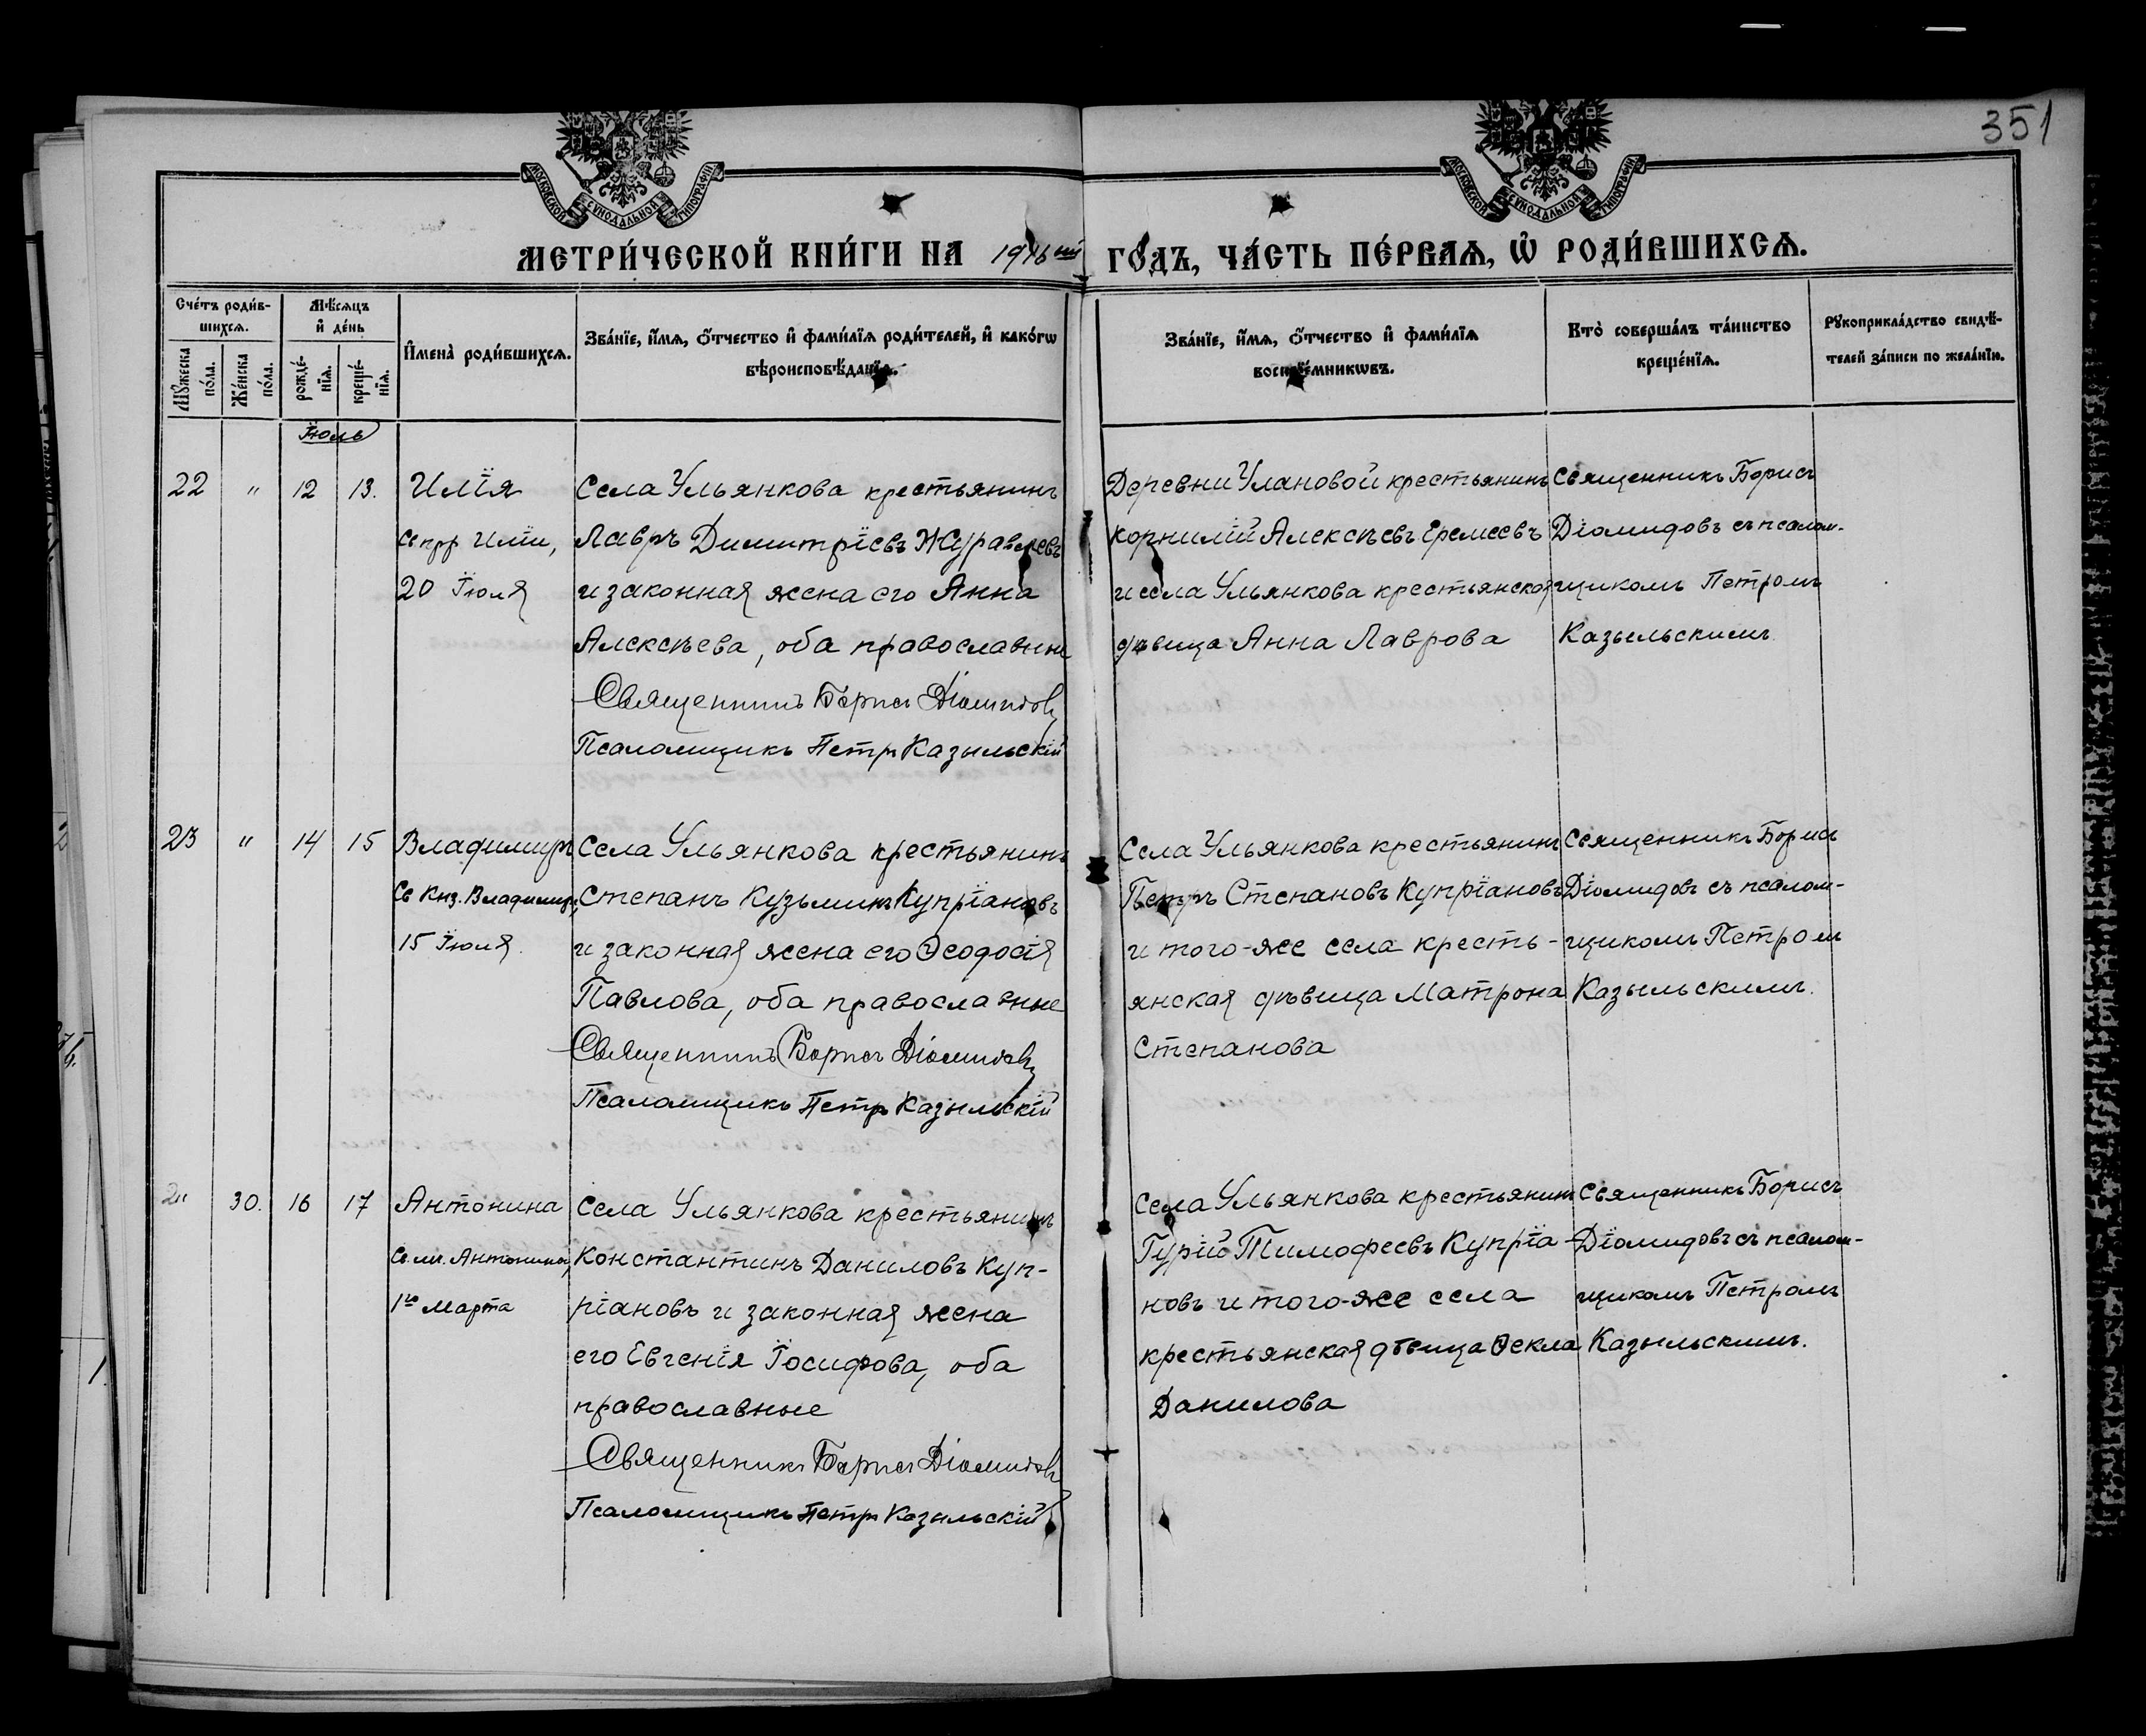 351
МОСКОВСКОЙ СѴНОДАЛЬНОЙ ТИПОГРАФІИ
МОСКОВСКОЙ СѴНОДАЛЬНОЙ ТИПОГРАФІИ
МЕТРИ́ЧЕСКОЙ КНИ́ГИ НА 1916 ый ГО́ДЪ, ЧА́СТЬ ПЕ́РВАѦ, Ѡ҆ РОДИ́ВШИХСѦ.
Сче́тъ роди́в-
шихсѧ.
Мѣ́сѧцъ
и҆ де́нь
Мꙋжеска по́ла.
Же́нска по́ла.
рожде́-
нїѧ.
креще́-
нїѧ.
И҆мена̀ роди́вшихсѧ.
Зва́нїе, и҆́мѧ, ѻ҆́тчество и҆ фами́лїѧ роди́телей, и҆ како́гѡ
вѣроисповѣ́данїѧ.
Зва́нїе, и҆́мѧ, ѻ҆́тчество и҆ фами́лїѧ
воспрїе́мникѡвъ.
Кто̀ соверша́лъ та́инство
креще́нїѧ.
Рꙋкоприкла́дство свидѣ́-
телей за́писи по жела́нїю.
Їюль
22 " 12 13. Илїя
Св прр Илїи,
20 Їюля
Села Ульянкова крестьянинъ
Лавръ Димитрїевъ Журавлевъ
и законная жена его Анна
Алексѣева, оба православные
Священникъ Борисъ Діомидовъ
Псаломщикъ Петръ Казыльскій
Деревни Улановой крестьянинъ
Корнилїй Алексѣевъ Еремеевъ
и села Ульянкова крестьянская
дѣвица Анна Лаврова
Священникъ Борисъ
Діомидовъ съ псалом-
щикомъ Петромъ
Казыльскимъ.
23 " 14 15 Владимиръ
Св Кнз. Владимира,
15 Їюля.
Села Ульянкова крестьянинъ
Степанъ Кузьминъ Купрїановъ
и законная жена его Ѳеодосїя
Павлова, оба православные
Священникъ Борисъ Діомидовъ
Псаломщикъ Петръ Казыльскій
Села Ульянкова крестьянинъ
Петръ Степановъ Купрїановъ
и того-же села кресть-
янская дѣвица Матрона
Степанова
Священникъ Борисъ
Діомидовъ съ псалом-
щикомъ Петромъ
Казыльскимъ.
" 30. 16 17 Антонина
Св. мц. Антонины,
1го Марта
Села Ульянкова крестьянинъ
Константинъ Даниловъ Куп-
ріановъ и законная жена
его Евгенїя Їосифова, оба
православные
Священникъ Борисъ Діомидовъ
Псаломщикъ Петръ Казыльскій
Села Ульянкова крестьянинъ
Гурїй Тимофеевъ Купрїа-
новъ и того-же села
крестьянская дѣвица Ѳекла
Данилова
Священникъ Борисъ
Діомидовъ съ псалом-
щикомъ Петромъ
Казыльскимъ.